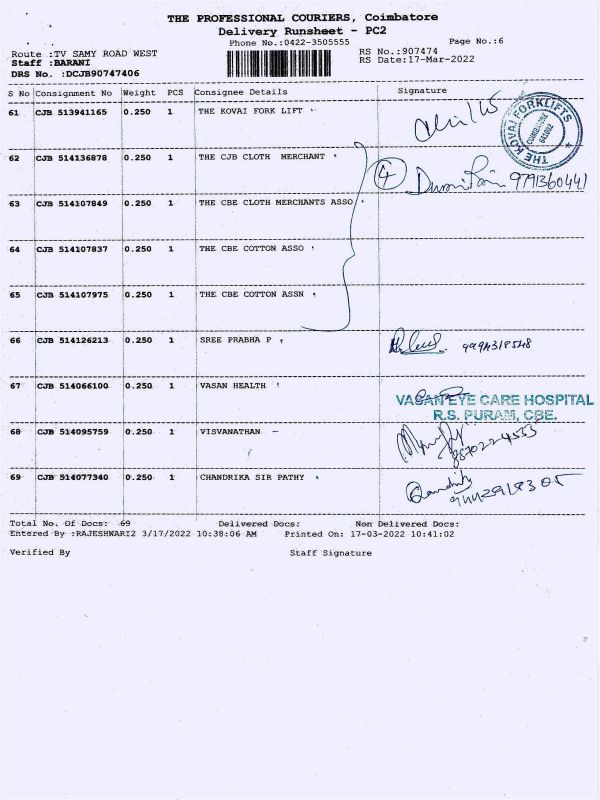 THE PROFESSIONAL COURIERS, Coimbatore
Delivery Runsheet - PC2
Phone No.:0422-3505555 Page No.:6
Route :TV SAMY ROAD WEST RS No.:907474
Staff :BARANI RS Date:17-Mar-2022
DRS No. :DCJB90747406
S No Consignment No Weight PCS Consignee Details Signature
61 CJB 513941165 0.250 1 THE KOVAI FORK LIFT
THE KOVAI FORKLIFTS
COIMBATORE
62 CJB 514136878 0.250 1 THE CJB CLOTH MERCHANT
4 9791360441
63 CJB 514107849 0.250 1 THE CBE CLOTH MERCHANTS ASSO
64 CJB 514107837 0.250 1 THE CBE COTTON ASSO
65 CJB 514107975 0.250 1 THE CBE COTTON ASSN
66 CJB 514126213 0.250 1 SREE PRABHA P
67 CJB 514066100 0.250 1 VASAN HEALTH
VASAN EYE CARE HOSPITAL
R.S. PURAM, CBE.
68 CJB 514095759 0.250 1 VISVANATHAN
69 CJB 514077340 0.250 1 CHANDRIKA SIR PATHY
Total No. Of Docs: 69 Delivered Docs: Non Delivered Docs:
Entered By :RAJESHWARI2 3/17/2022 10:38:06 AM Printed On: 17-03-2022 10:41:02
Verified By Staff Signature